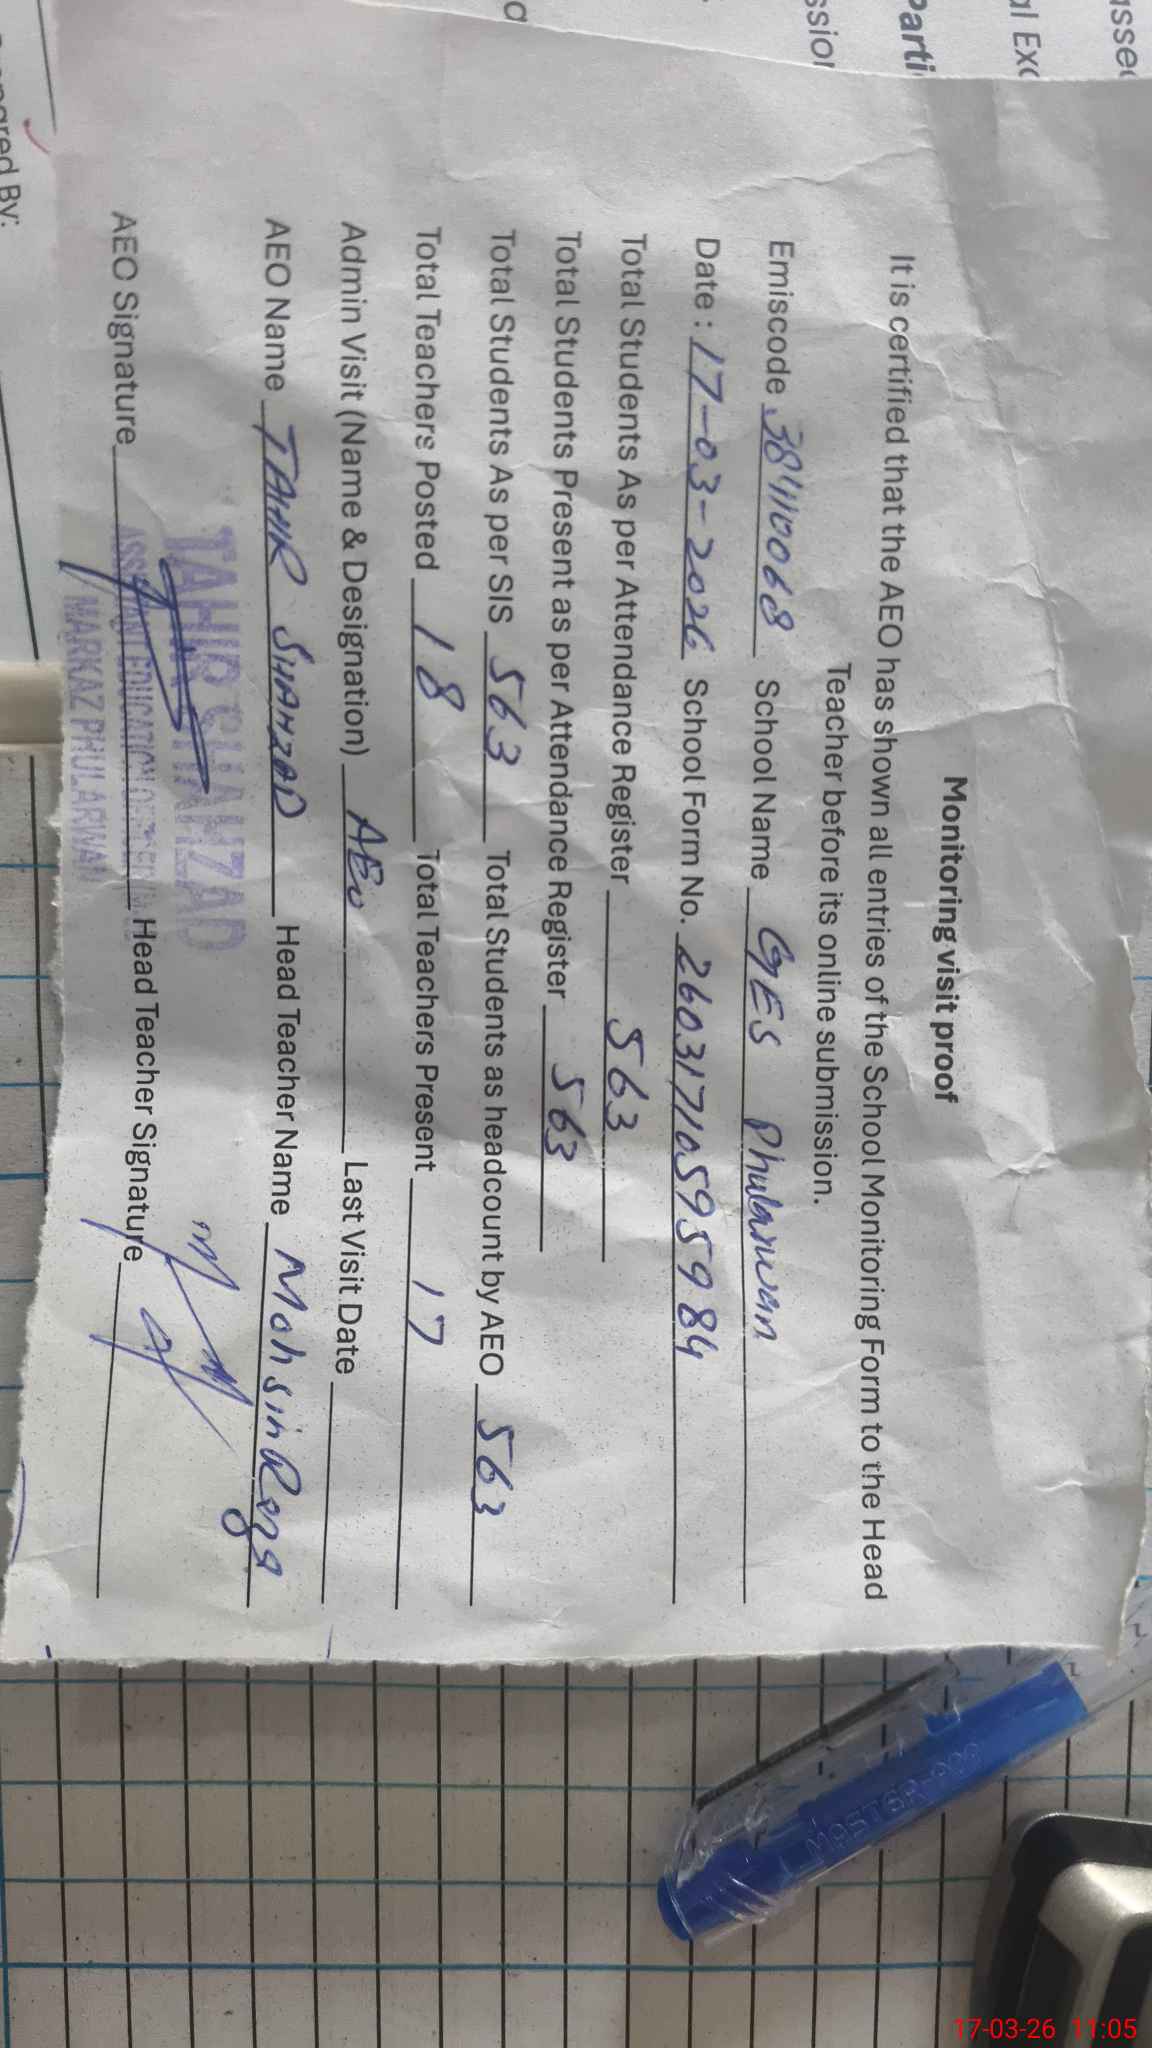 Monitoring visit proof
It is certified that the AEO has shown all entries of the School Monitoring Form to the Head
Teacher before its online submission.
Emiscode 38410068 School Name GES Phularwan
Date : 17-03-2026 School Form No. 26031710595984
Total Students As per Attendance Register 563
Total Students Present as per Attendance Register 563
Total Students As per SIS 563 Total Students as headcount by AEO 563
Total Teachers Posted 18 Total Teachers Present 17
Admin Visit (Name & Designation) AEO Last Visit Date
AEO Name TAHIR SHAHZAD Head Teacher Name Mohsin Raza
TAHIR SHAHZAD
AEO Signature Head Teacher Signature
ASSISTANT EDUCATION OFFICER
MARKAZ PHULARWAN
MASTER
17-03-26 11:05